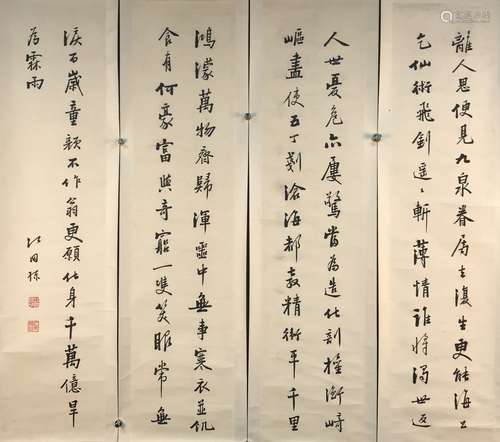 離人思便見九泉眷屬立復生更能海上
乞仙術飛劍遥遥斬薄情誰將濁世返
人世憂危亦屢驚當為造化剖權衡崎
嶇盡使五丁剗滄海都教精衛平千里
鴻濛萬物齊歸渾噩中無事寒衣並飢
食有何豪富與奇窮一雙笑眼常無
淚百歲童顏不作翁更願化身千萬億旱
為霖雨